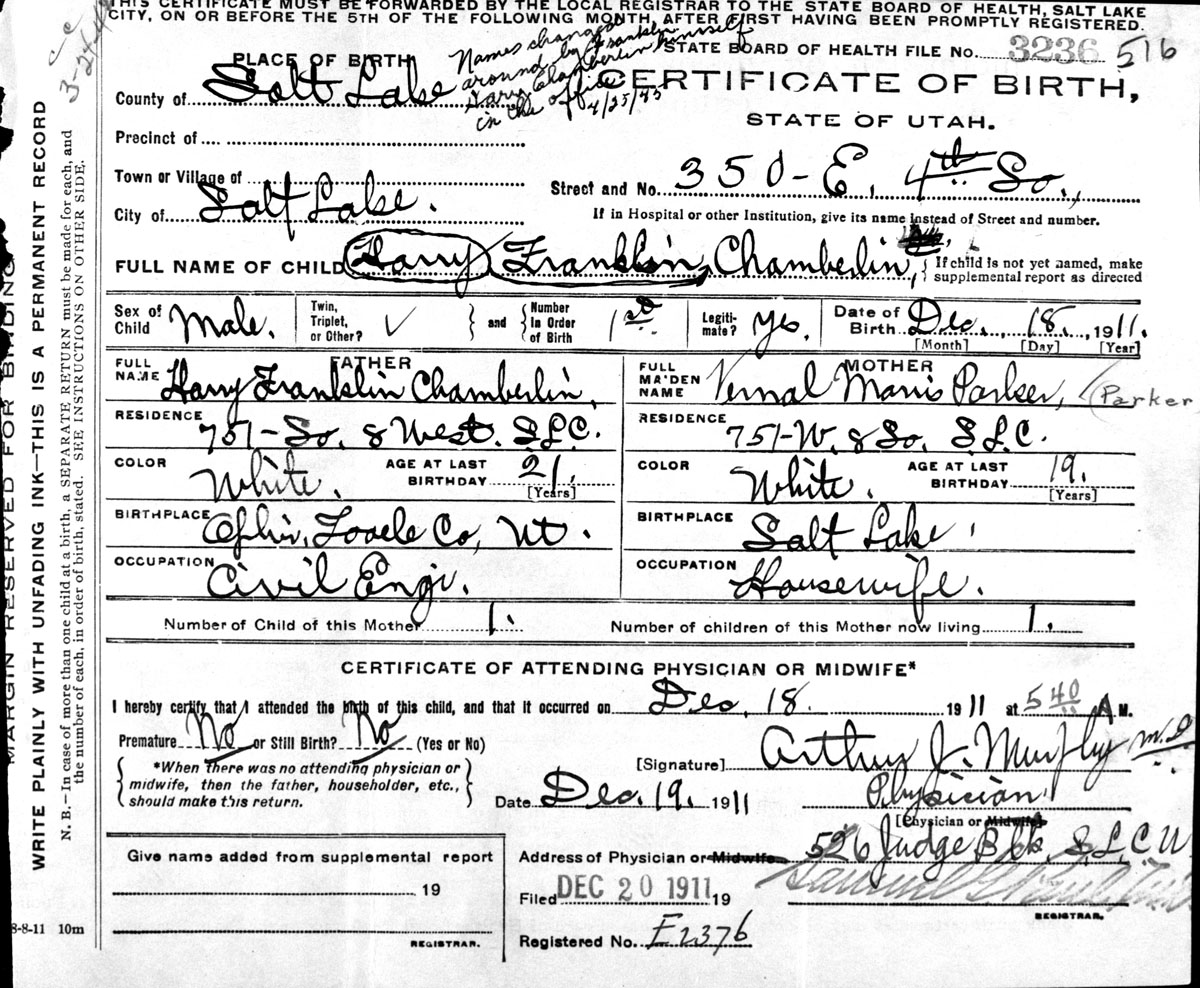 THIS CERTIFICATE MUST BE FORWARDED BY THE LOCAL REGISTRAR TO THE STATE BOARD OF HEALTH, SALT LAKE
CITY, ON OR BEFORE THE 5TH OF THE FOLLOWING MONTH, AFTER FIRST HAVING BEEN PROMPTLY REGISTERED.
STATE BOARD OF HEALTH FILE No. 3236 516
Names changed
around by Franklin
Harry Chamberlin himself
in the office
4/25/45
PLACE OF BIRTH
CERTIFICATE OF BIRTH,
STATE OF UTAH.
County of Salt Lake
Precinct of
Town or Village of
Street and No. 350-E. 4th So.,
City of Salt Lake.
If in Hospital or other Institution, give its name instead of Street and number.
FULL NAME OF CHILD Harry Franklin, Chamberlin,
If child is not yet named, make
supplemental report as directed
Sex of Child Male.
Twin, Triplet, or Other? ✓ and Number in Order of Birth 1st
Legitimate? yes.
Date of Birth Dec., 18, 1911.
[Month] [Day] [Year]
FATHER
FULL NAME Harry Franklin Chamberlin,
RESIDENCE 751-So. 8 West. S.L.C.
COLOR White. AGE AT LAST BIRTHDAY 21. [Years]
BIRTHPLACE Ophir, Tooele Co, Ut.
OCCUPATION Civil Engr.
MOTHER
FULL MAIDEN NAME Vernal Morris Parker, (Parker
RESIDENCE 751-W. 8 So. S.L.C.
COLOR White. AGE AT LAST BIRTHDAY 19. [Years]
BIRTHPLACE Salt Lake.
OCCUPATION Housewife.
Number of Child of this Mother 1.
Number of children of this Mother now living 1.
CERTIFICATE OF ATTENDING PHYSICIAN OR MIDWIFE*
I hereby certify that I attended the birth of this child, and that it occurred on Dec, 18. 1911 at 5 40 A M.
Premature No or Still Birth? No (Yes or No)
*When there was no attending physician or
midwife, then the father, householder, etc.,
should make this return.
[Signature] Arthur J. Murphy M.D
Date Dec. 19. 1911
Physician.
[Physician or Midwife]
Address of Physician or Midwife 526 Judge Blk. S.L.C U
Give name added from supplemental report
19
REGISTRAR.
Filed DEC 20 1911 19
REGISTRAR.
Registered No. E2376
8-8-11 10m
MARGIN RESERVED FOR BINDING
WRITE PLAINLY WITH UNFADING INK—THIS IS A PERMANENT RECORD
N. B.—In case of more than one child at a birth, a SEPARATE RETURN must be made for each, and
the number of each, in order of birth, stated. SEE INSTRUCTIONS ON OTHER SIDE.